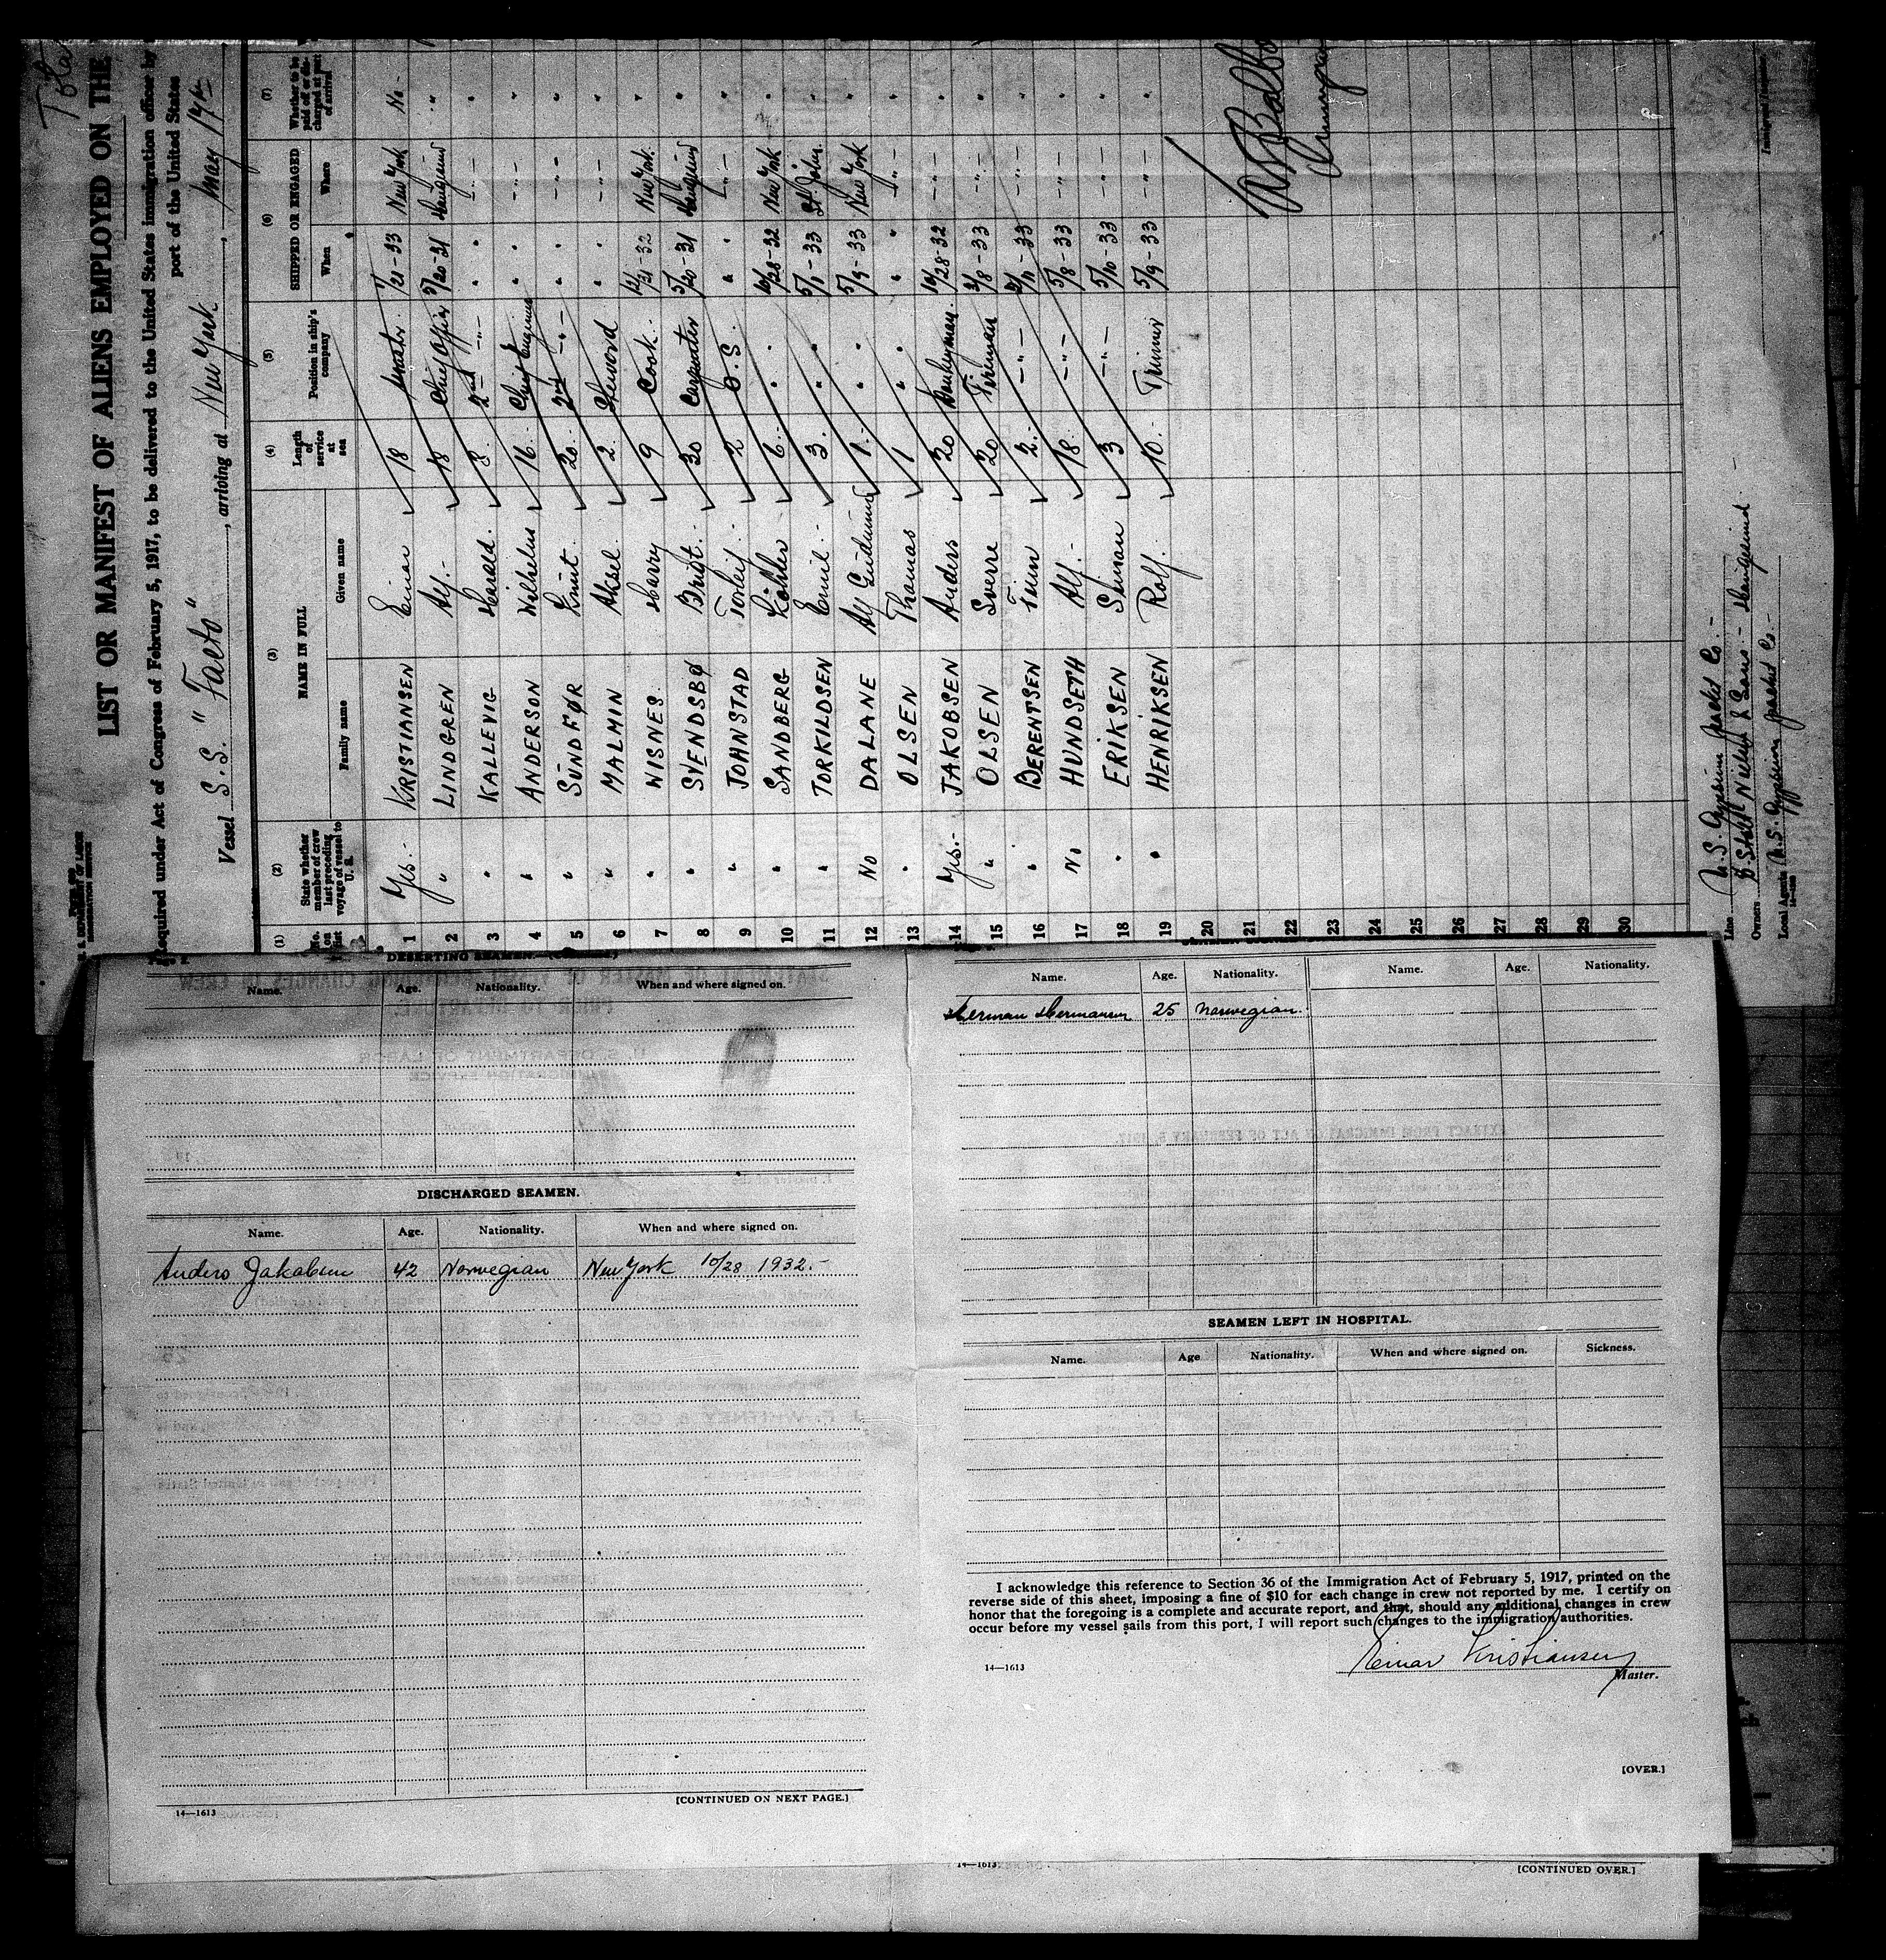 LIST OR MANIFEST OF ALIENS EMPLOYED ON THE
Required under Act of Congress of February 5, 1917, to be delivered to the United States immigration officer by
port of the United States
Vessel S.S. "Falto", arriving at New York, May 14th
(1) (2) (3) (4) (5) (6) (7)
No. on list | State whether member of crew last preceding voyage of vessel to U. S. | NAME IN FULL | Length of service at sea | Position in ship's company | SHIPPED OR ENGAGED | Whether to be paid off or discharged at port of arrival
Family name | Given name | When | Where
1 Yes.- KRISTIANSEN Einar 18 Master 1/21-33 New York No-
2 " LINDGREN Alf.- 18 Chief Officer 5/20-31 Haugesund "
3 " KALLEVIG Harald. 8 2nd -"- " -"- "
4 " ANDERSON Wilhelm 16 Chief Engineer " -"- "
5 " SUNDFØR Knut 20 2nd -"- " -"- "
6 " MALMIN Aksel 2 Steword " -"- "
7 " WISNES Harry 9 Cook 12/31-32 New York "
8 " SVENDSBØ Bringt. 30 Carpenter 5/20-31 Haugesund "
9 " JOHNSTAD Torleif 2 O.S. " -"- "
10 " SANDBERG 6 " 10/28-32 New York "
11 " TORKILDSEN Emil 3 " 5/1-33 St. John "
12 No DALANE Alf Gudmund 1 " 5/9-33 New York "
13 " OLSEN Thomas 1 " " -"- "
14 Yes.- JAKOBSEN Anders 20 Donkeyman 10/28-32 -"- "
15 " OLSEN Sverre 20 Fireman 3/8-33 -"- "
16 " BERENTSEN 2 -"- 3/11-33 -"- "
17 No HUNDSETH Alf.- 18 -"- 5/8-33 -"- "
18 " ERIKSEN 3 -"- 5/10-33 -"- "
19 " HENRIKSEN Rolf 10 Trimmer 5/9-33 -"- "
20
21
22
23
24
25
26
27
28
29
30
Line U.S. Gypsum Packet Co.-
Owners B. Stolt Nielsen & Sons - Haugesund
Local Agents U.S. Gypsum packet Co.-
DESERTING SEAMEN.
Name. Age. Nationality. When and where signed on.
DISCHARGED SEAMEN.
Name. Age. Nationality. When and where signed on.
Anders Jakobsen 42 Norwegian New York 10/28 1932.-
14—1613
[CONTINUED ON NEXT PAGE.]
Name. Age. Nationality. Name. Age. Nationality.
Herman Hermansen 25 Norwegian
SEAMEN LEFT IN HOSPITAL.
Name. Age Nationality. When and where signed on. Sickness.
I acknowledge this reference to Section 36 of the Immigration Act of February 5, 1917, printed on the
reverse side of this sheet, imposing a fine of $10 for each change in crew not reported by me. I certify on
honor that the foregoing is a complete and accurate report, and that, should any additional changes in crew
occur before my vessel sails from this port, I will report such changes to the immigration authorities.
Einar Kristiansen
14—1613
Master.
[OVER.]
14—1613
[CONTINUED OVER.]